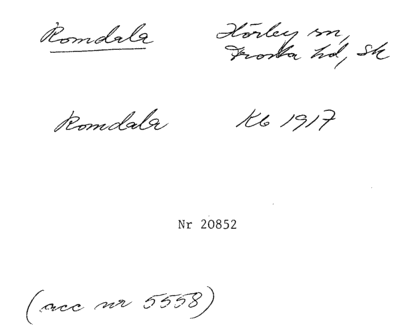 Romdala Hörby sn,
Frosta hd, Sk
Romdala Kb 1917
Nr 20852
(acc nr 5558)